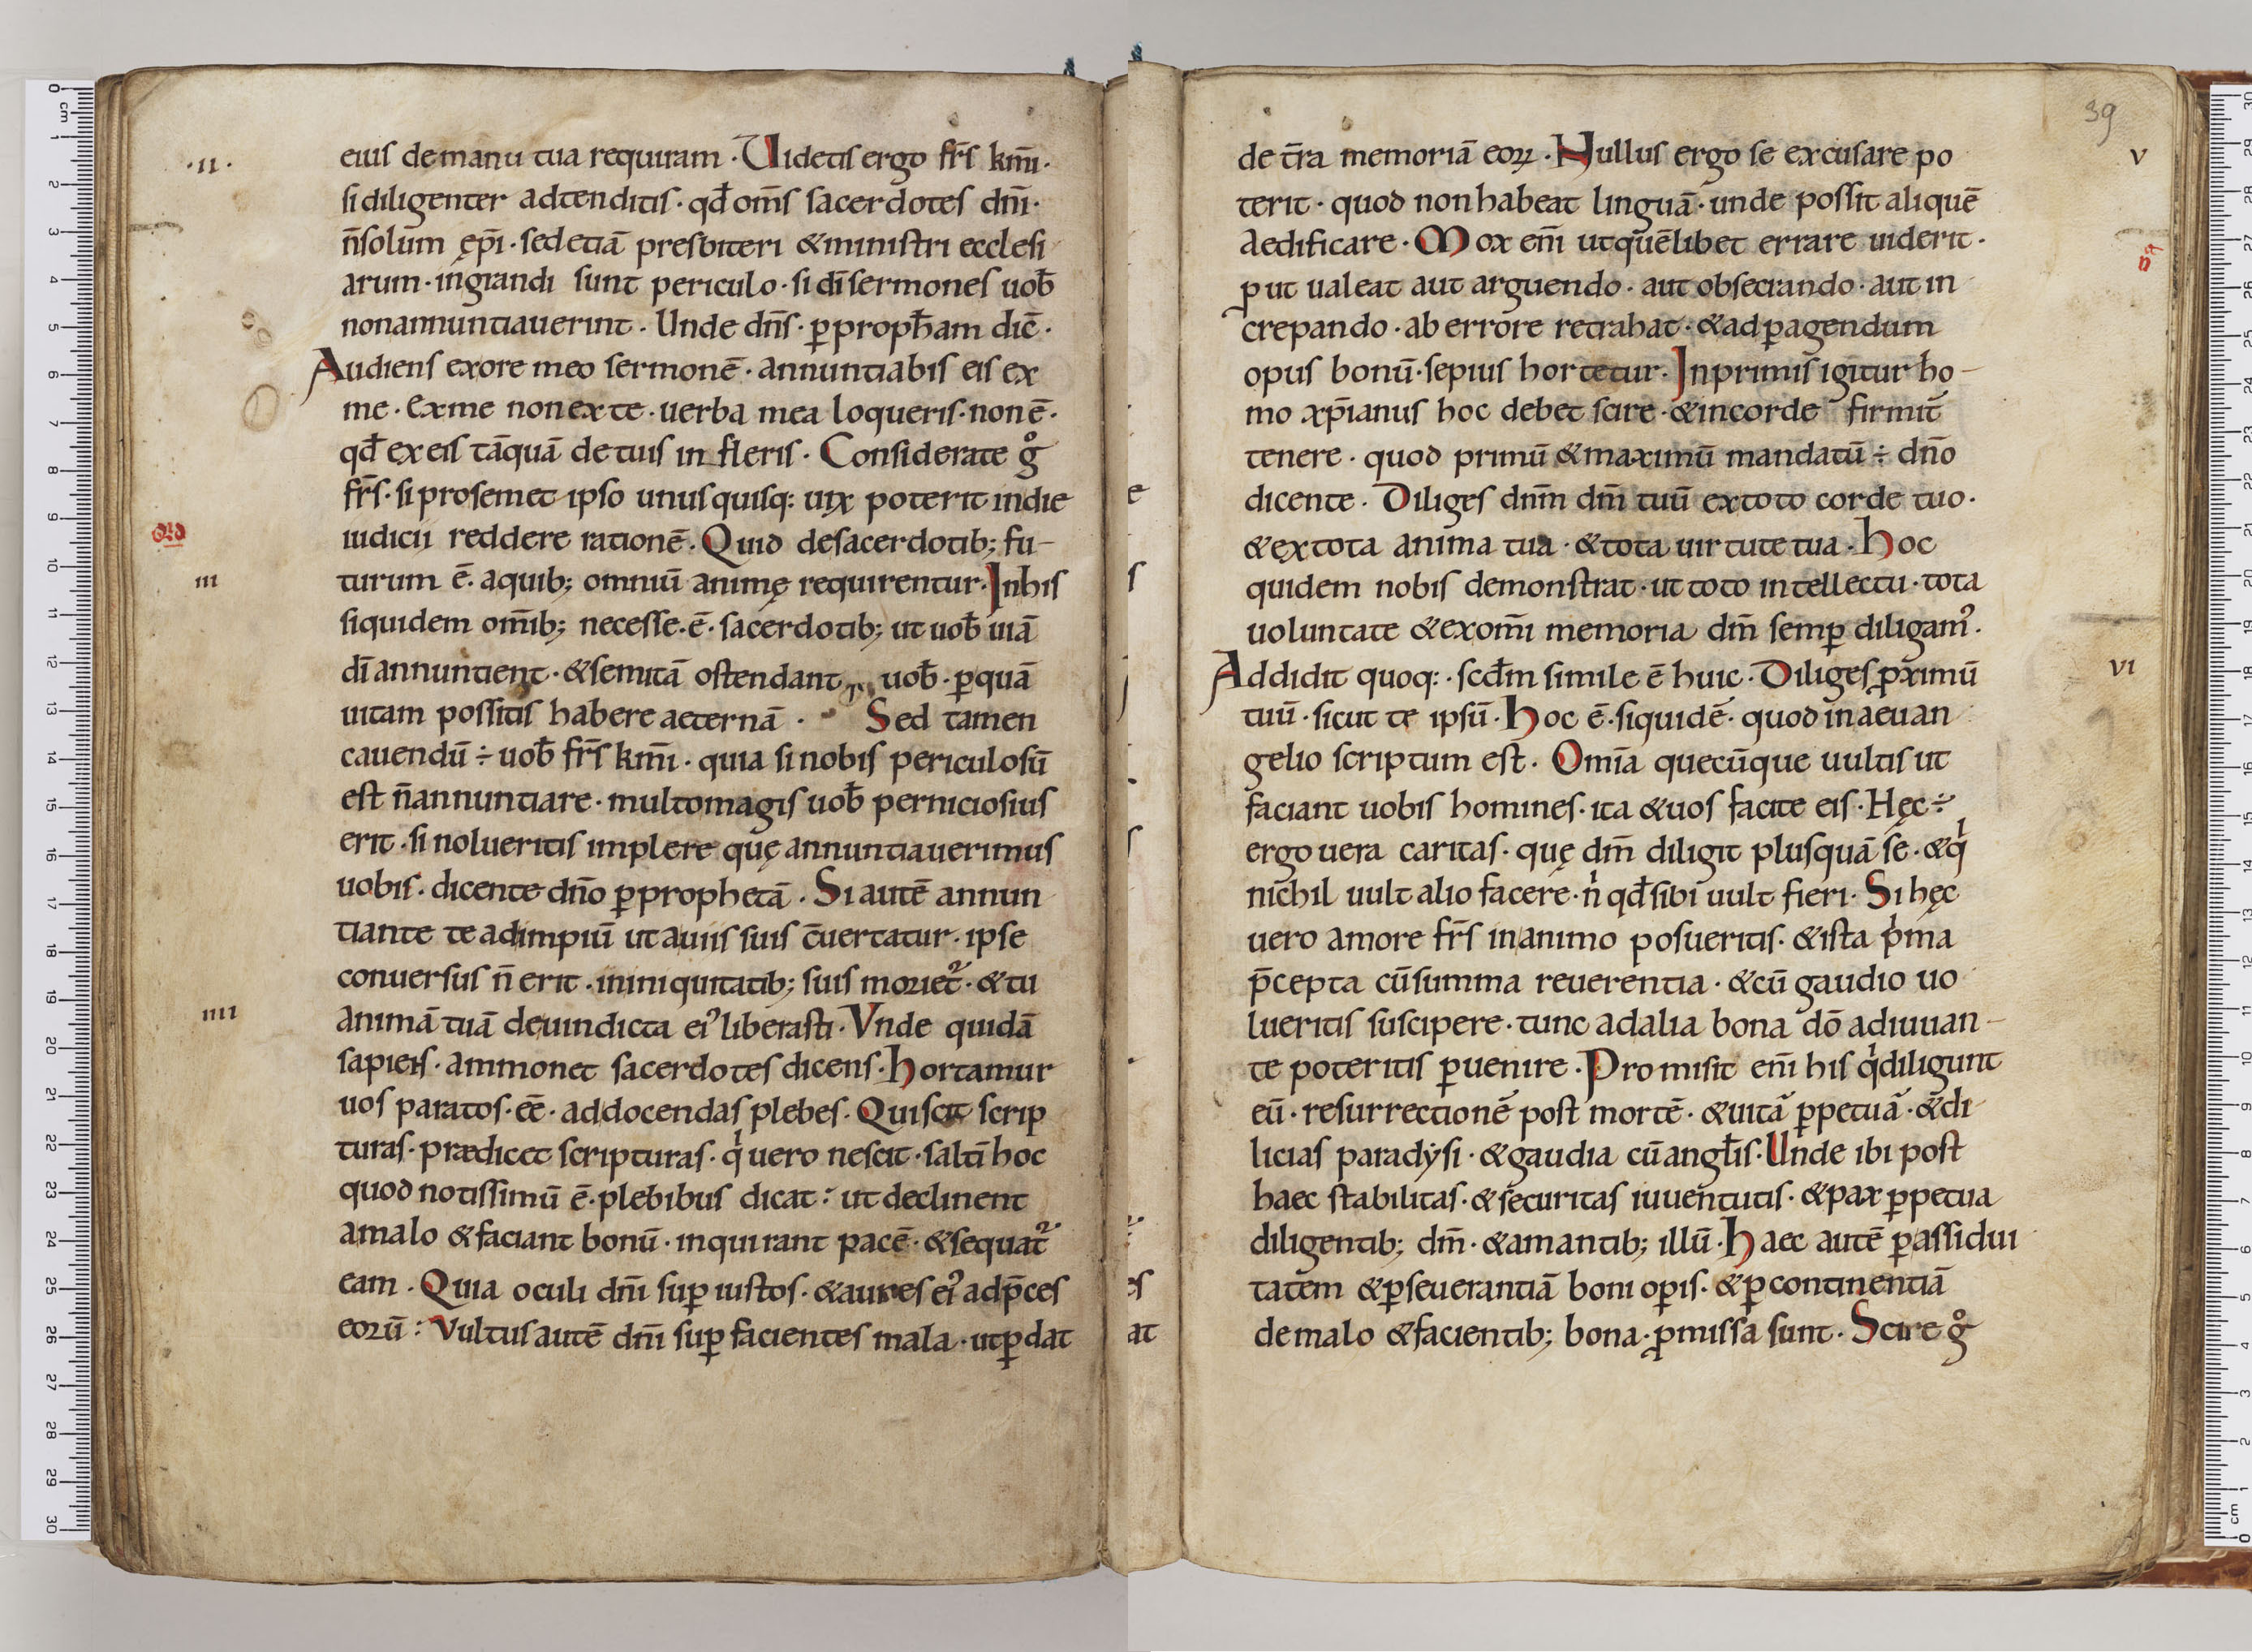 ·II·
eius demanu tua requiram · Uidetis ergo fr̄s km̄i·
si diligenter adtenditis · qđ om̄s sacerdotes dn̄i·
n̄ solum ep̄i · sed etiā presbiteri & ministri ecclesi
arum · in grandi sunt periculo · si dī sermones uob̄
non annuntiauerint · Unde dn̄s · ꝑ propħam dic̄ ·
Audiens ex ore meo sermonē · annuntiabis eis ex
me · Ex me non ex te · uerba mea loqueris · non ē ·
qđ ex eis tāquā de tuis in fleris · Considerate gͦ
fr̄s · si pro semet ipso unusquisq: uix poterit in die
iudicii reddere rationē · Quid de sacerdotib; fu-
III
turum ē · a quib; omniū animę requirentur · In his
siquidem om̄ib; necesse · ē · sacerdotib; ut uob̄ uiā
dī annuntient · & semitā ostendant uob̄ · ꝑ quā
uitam possitis habere aeternā · Sed tamen
cauendū ÷ uob̄ fr̄s km̄i · quia si nobis periculosū
est n̄ annuntiare · multo magis uob̄ perniciosius
erit · si nolueritis implere quę annuntiauerimus
uobis · dicente dn̄o ꝑ prophetā · Si autē annun
tiante te ad impiū ut a uiis suis c̄uertatur · ipse
conuersus n̄ erit · in iniquitatib; suis moriet᷑ · & tu
IIII
animā tuā de uindicta ei᾿ liberasti · Vnde quidā
sapiens · ammonet sacerdotes dicens · Hortamur
uos paratos · eē · ad docendas plebes · Qui scit scrip
turas · prædicet scripturas · qͥ uero nescit · saltī hoc
quod notissimū ē · plebibus dicat : ut declinent
a malo & faciant bonū · inquirant pacē · & sequat᷑
eam · Quia oculi dn̄i suꝑ iustos · & aures ei᾿ ad p̄ces
eorū : Vultus autē dn̄i suꝑ facientes mala · ut ꝑdat
39
V
de t̄ra memoriā eoꝝ · Nullus ergo se excusare po
terit · quod non habeat linguā · unde possit aliquē
aedificare · Mox em̄ ut quēlibet errare uiderit ·
ꝓut ualeat aut arguendo · aut obsecrando · aut in
crepando · ab errore retrahat · & ad ꝑagendum
opus bonū · sepius hortetur · In primis igitur ho-
mo xp̄ianus hoc debet scire · & in corde firmit̄
tenere · quod primū & maximū mandatū ÷ dn̄o
dicente · Diliges dn̄m dm̄ tuū ex toto corde tuo ·
& ex tota anima tua · & tota uirtute tua · Hoc
quidem nobis demonstrat · ut toto intellectu · tota
uoluntate & ex om̄i memoria dm̄ semꝑ diligam᾿ ·
VI
Addidit quoq: · scđm simile ē huic · Diliges ꝓximū
tuū · sicut te ipsū · Hoc ē · siquidē · quod in aeuan
gelio scriptum est · Omīa quecūque uultis ut
faciant uobis homines · ita & uos facite eis · Hęc ÷
ergo uera caritas · quę dm̄ diligit plus quā se · & qͥ
nichil uult alio facere · nͥ qđ sibi uult fieri · Si hęc
uero amore fr̄s in animo posueritis · & ista pͥma
p̄cepta cū summa reuerentia · & cū gaudio uo
lueritis suscipere · tunc ad alia bona dō adiuuan-
te poteritis ꝑuenire · Promisit em̄ his qͥ diligunt
eū · resurrectionē post mortē · & uitā ꝑpetuā · & di
licias paradysi · & gaudia cū angłis · Unde ibi post
haec stabilitas · & securitas iuuentutis · & pax ꝑpetua
diligentib; dm̄ · & amantib; illū · Haec autē ꝑ assidui
tatem & ꝑseuerantiā boni oꝑis · & ꝑ continentiā
de malo & facientib; bona · ꝓmissa sunt · Scire gͦ